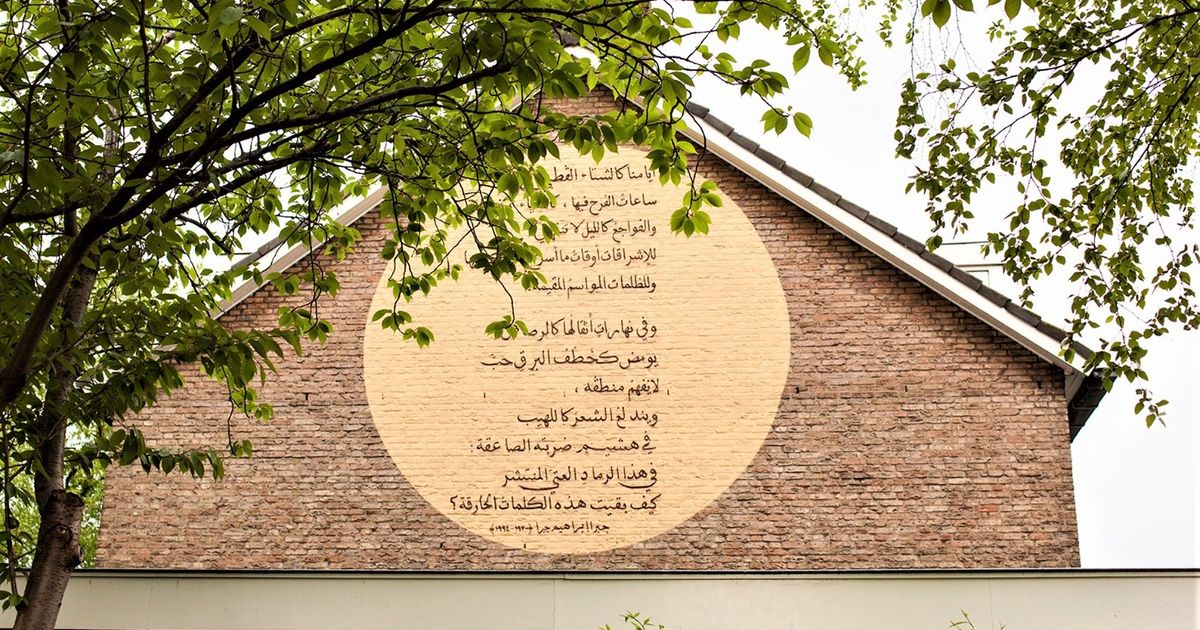 أيامنا كالشتاء القطـ
ساعات الفرح فيها ،
والفواجع كالليل لا
للإشراقات أوقات ما أسـ
وللظلمات المواسم المقيمة.
وفي نهارات أثقالها كالرصـ
يومض كخطف البرق حبّ
لا يفهم منطقه ،
ويندلع الشعر كاللهيب
في هشيم ضربته الصاعقة :
في هذا الرماد العتيّ المنتشر
كيف بقيت هذه الكلمات الحارقة ؟
جبرا إبراهيم جبرا (١٩٢٠-١٩٩٤)